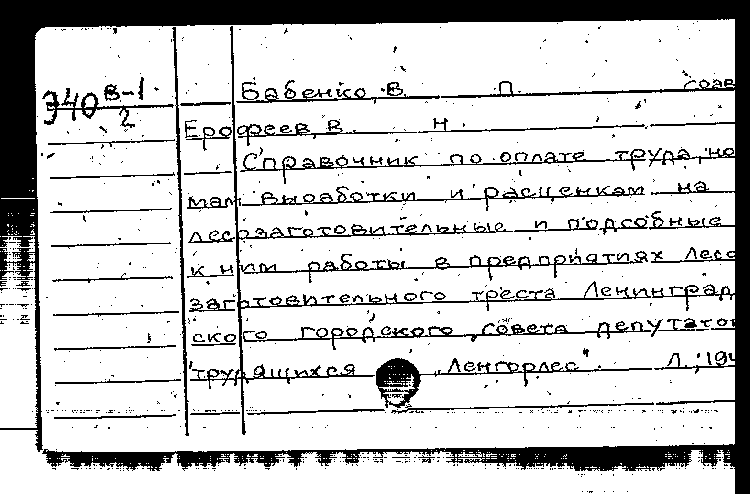 Э40 В-1
2
Бабенко, В. П. соав
Ерофеев, В. Н.
Справочник по оплате труда, но
мам выработки и расценкам на
лесозаготовительные и подсобные
к ним работы в предприятиях Лесо
заготовительного треста Ленинград
ского городского совета депутатов
трудящихся „Ленгорлес". Л., 194